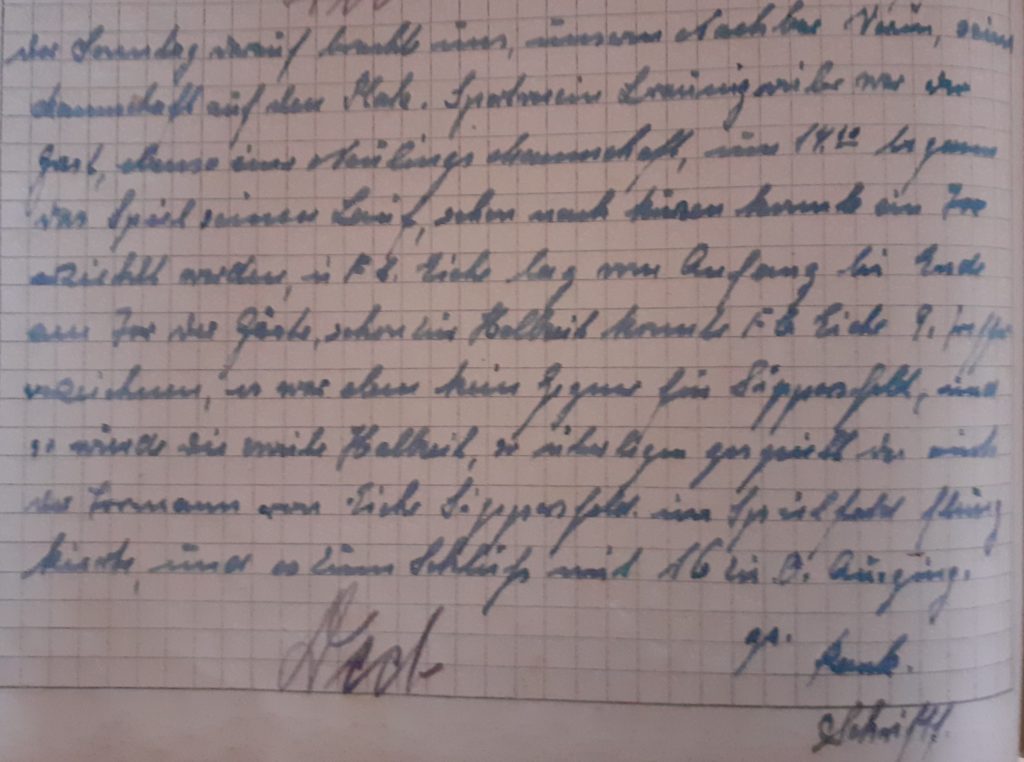 der Sonntag darauf brachte uns, unseren Nachbar Verein, seine
Mannschaft auf den Platz. Sportverein Breunigweiler war der
Gast, ebenso eine Neulings Mannschaft, um 14.10 begann
das Spiel seinen Lauf, schon nach kurzen konnte ein Tor
erziehlt werden, u F.C. Eiche lag von Anfang bis Ende
am Tor der Gäste, schon bis Halbzeit konnte F.C. Eiche 9.
verzeichnen, es war eben kein Gegner für Sippersfeld, und
so wurde die zweite Halbzeit, so überlegen gespielt das auch
der Tormann von Eiche Sippersfeld. im Spielfeld
und es zum Schluß mit 16 zu 0. Ausging.
gez.
Schriftf.